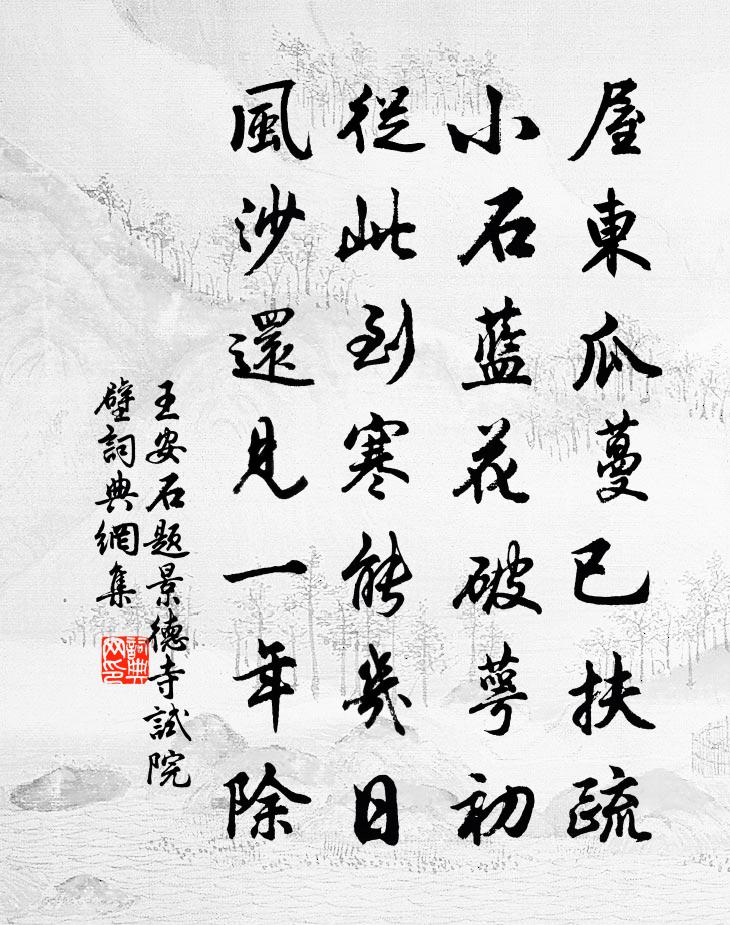 屋東瓜蔓已扶疏
小石藍花破萼初
從此到寒能幾日
風沙還見一年除
王安石題景德寺試院
壁詞典網集
詞典網印